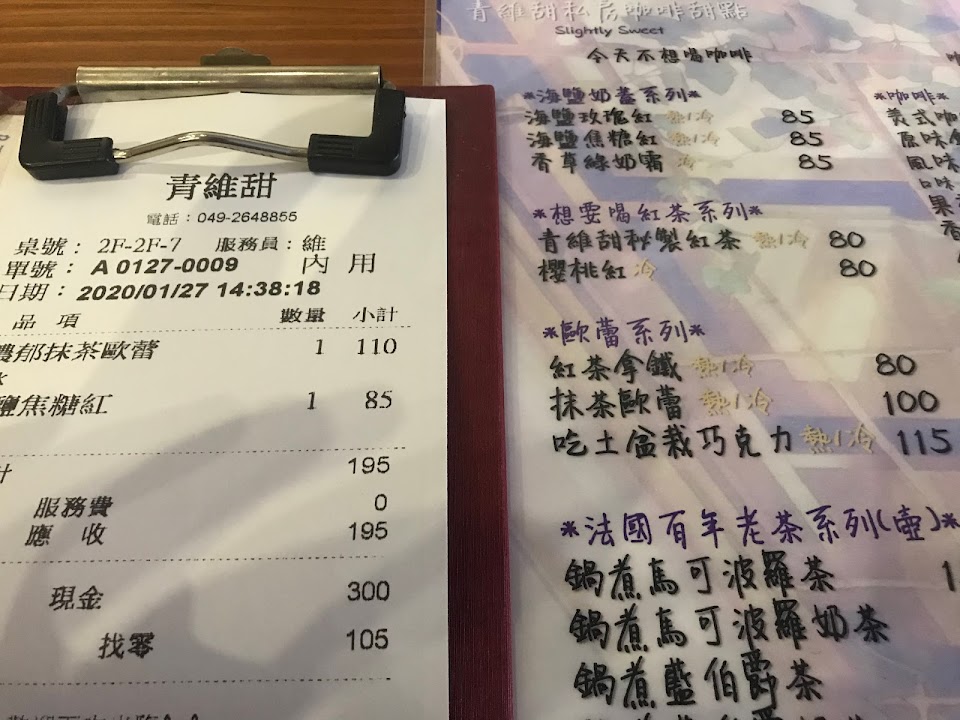 青維甜
電話：049-2648855
桌號： 2F-2F-7 服務員：維
單號： A 0127-0009 內 用
日期： 2020/01/27 14:38:18
品 項 數量 小計
濃郁抹茶歐蕾 1 110
鹽焦糖紅 1 85
計 195
服務費 0
應 收 195
現金 300
找零 105
青維甜私房咖啡甜點
Slightly Sweet
今天不想喝咖啡
*海鹽奶蓋系列*
海鹽玫瑰紅 熱/冷 85
海鹽焦糖紅 熱/冷 85
香草綠奶霜 冷 85
*想要喝紅茶系列*
青維甜秘製紅茶 熱/冷 80
櫻桃紅 冷 80
*歐蕾系列*
紅茶拿鐵 熱/冷 80
抹茶歐蕾 熱/冷 100
吃土盆栽巧克力 熱/冷 115
*法國百年老茶系列(壺)*
鍋煮馬可波羅茶 1
鍋煮馬可波羅奶茶
鍋煮藍伯爵茶
*咖啡*
美式咖
原味
風味
果
香